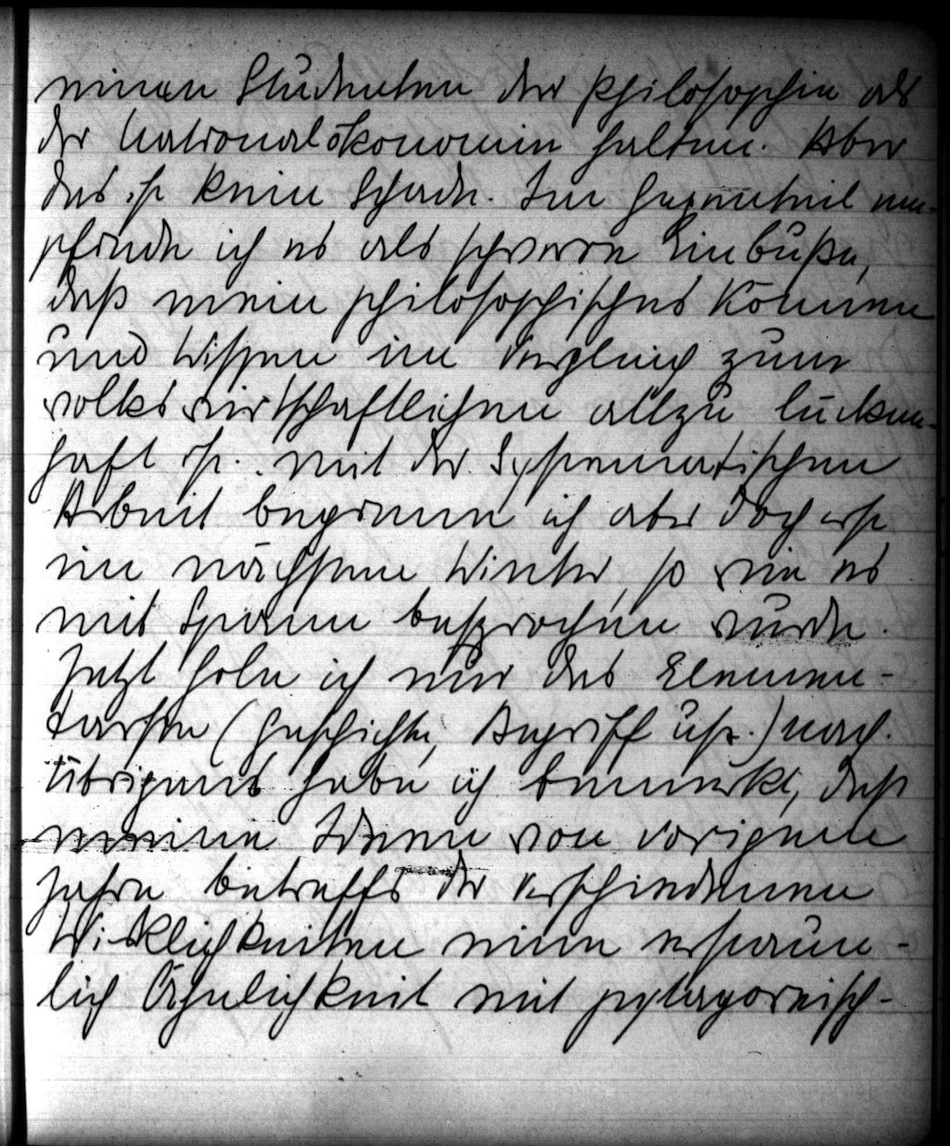 einen Studenten der Philosophie als
der Nationalökonomie halten. Aber
das ist kein Schade. Im Gegenteil em-
pfinde ich es als schwere Einbuße,
daß mein philosophisches Können
und Wissen im Vergleich zum
volkswirtschaftlichen allzu lücken-
haft ist. Mit der Systematischen
Arbeit beginne ich aber doch erst
im nächsten Winter, so wie es
mit Spann besprochen wurde.
Jetzt hole ich nur das Elemen-
tarste (Geschichte, Begriff usf.) nach.
Übrigens habe ich bemerkt, daß
meine Ideen von vorigem
Jahre betreffs der verschiedenen
Wirklichkeiten eine erstaun-
lich Ähnlichkeit mit pytagoreisch-